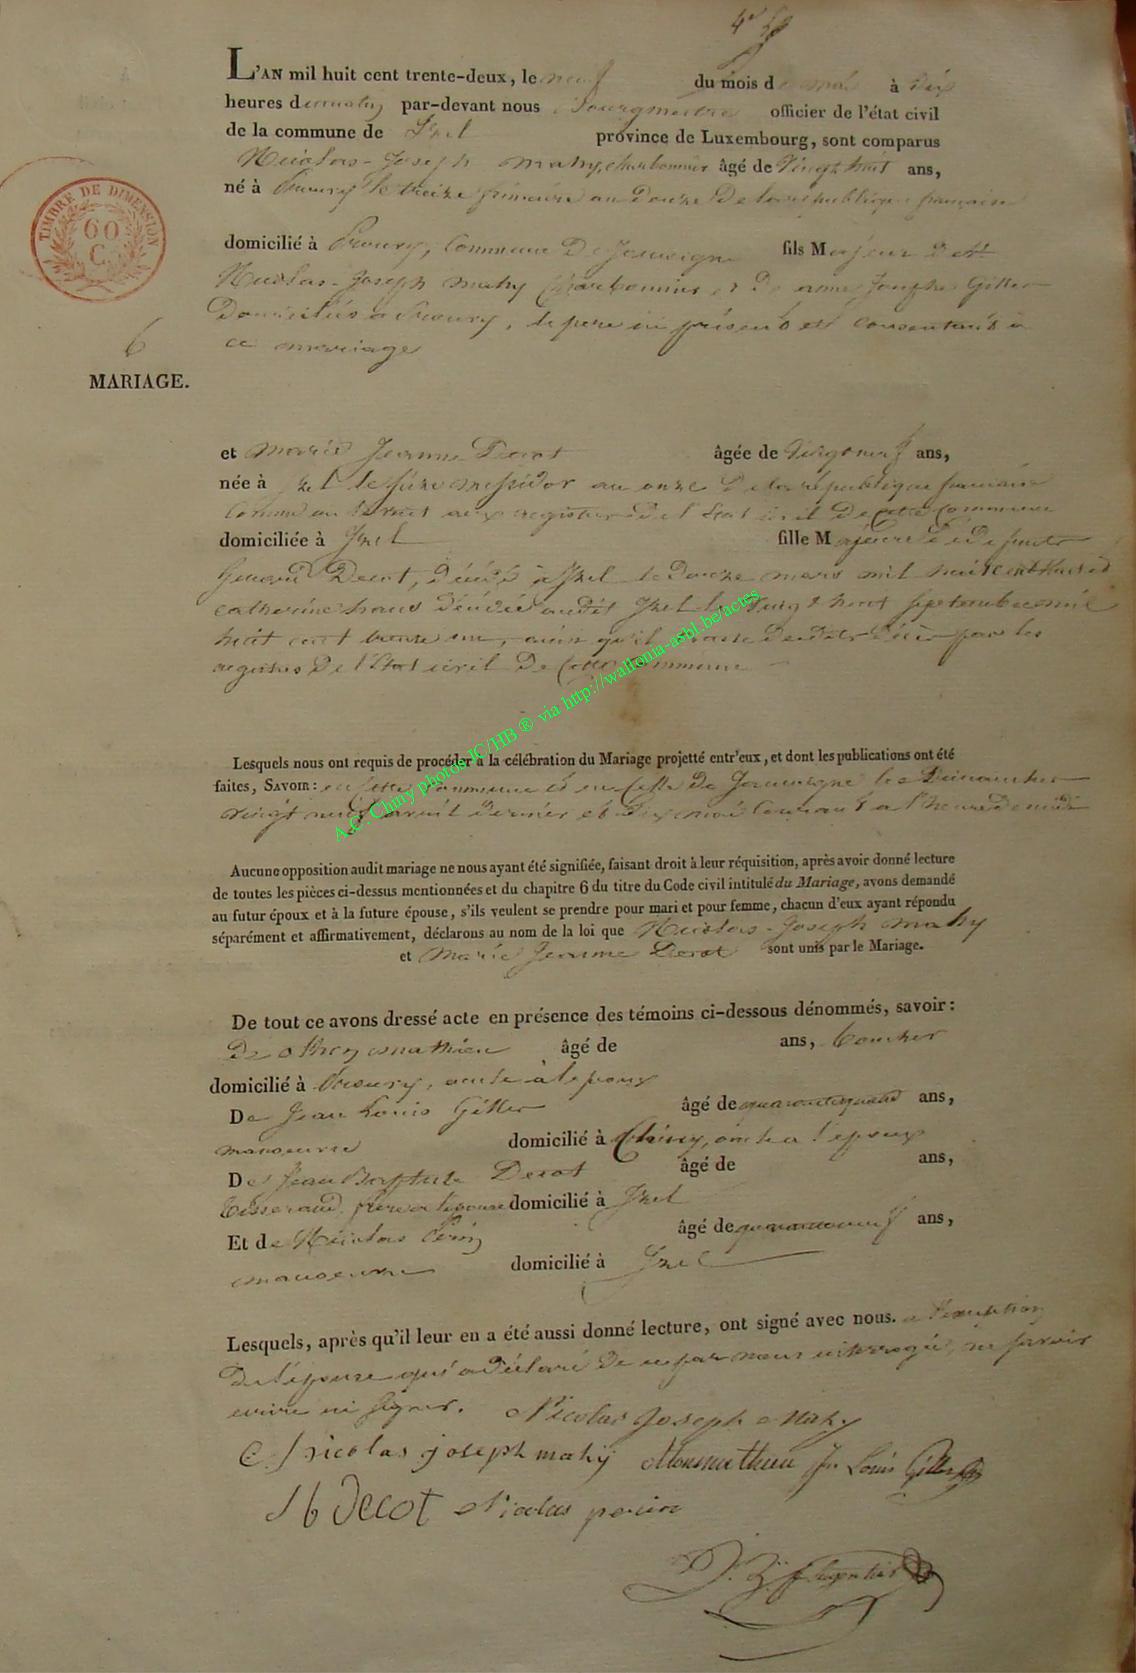 L'AN mil huit cent trente-deux, le neuf du mois de mai à dix
heures du matin par-devant nous Bourgmestre officier de l'état civil
de la commune de Izel province de Luxembourg, sont comparus
Nicolas-Joseph mahy, charbonnier âgé de vingt huit ans,
né à Prouvy le treize an Douze De la republique française
TIMBRE DE DIMENSION
60
C.
domicilié à Prouvy, Commune De Jamoigne fils Majeur de
Nicolas-Joseph mahy Charbonnier et De anne Joseph Giller
Domiciliés a Prouvy, le pere ici présent et consentant à
ce mariage
6
MARIAGE.
et marie Jeanne Decot âgée de vingt neuf ans,
née à Izel le messidor an onze De la republique française
Comme aux registres De l'Etat civil De cette Commune
domiciliée à Izel fille Majeure De defunts
Decot, Décédé à Izel le Douze mars mil huit cent
catherine hans Décédée audit Izel le vingt huit septembre mil
huit cent trente un, ainsi qu'il par les
registres De l'Etat civil De Cette Commune
Lesquels nous ont requis de procéder à la célébration du Mariage projetté entr'eux, et dont les publications ont été
faites, SAVOIR: en Cette Commune et en Celle De Jamoigne les Dimanches
vingt neuf avril dernier et six mai Courant à l'heure De midi
A.C. Chiny photos JC/HB ® via http://wallonia-asbl.be/actes
Aucune opposition audit mariage ne nous ayant été signifiée, faisant droit à leur réquisition, après avoir donné lecture
de toutes les pièces ci-dessus mentionnées et du chapitre 6 du titre du Code civil intitulé du Mariage, avons demandé
au futur époux et à la future épouse, s'ils veulent se prendre pour mari et pour femme, chacun d'eux ayant répondu
séparément et affirmativement, déclarons au nom de la loi que Nicolas-Joseph mahy
et Marie Jeanne Decot sont unis par le Mariage.
De tout ce avons dressé acte en présence des témoins ci-dessous dénommés, savoir:
De mathieu âgé de ans,
domicilié à Prouvy, oncle à l'epoux
De Jean Louis Giller âgé de ans,
manoeuvre domicilié à Chiny, oncle a l'epoux
De Jean Baptiste Decot âgé de ans,
tisserand, frere a l'epouse domicilié à Izel
Et de Nicolas Perin âgé de quarante neuf ans,
manoeuvre domicilié à Izel
Lesquels, après qu'il leur en a été aussi donné lecture, ont signé avec nous. a l'exception
De l'épouse qui a Déclaré De ce par nous interrogée, ne savoir
ecrire ni signer. Nicolas Joseph Mahy
nicolas joseph mahy Louis Giller
Decot Nicolas perin